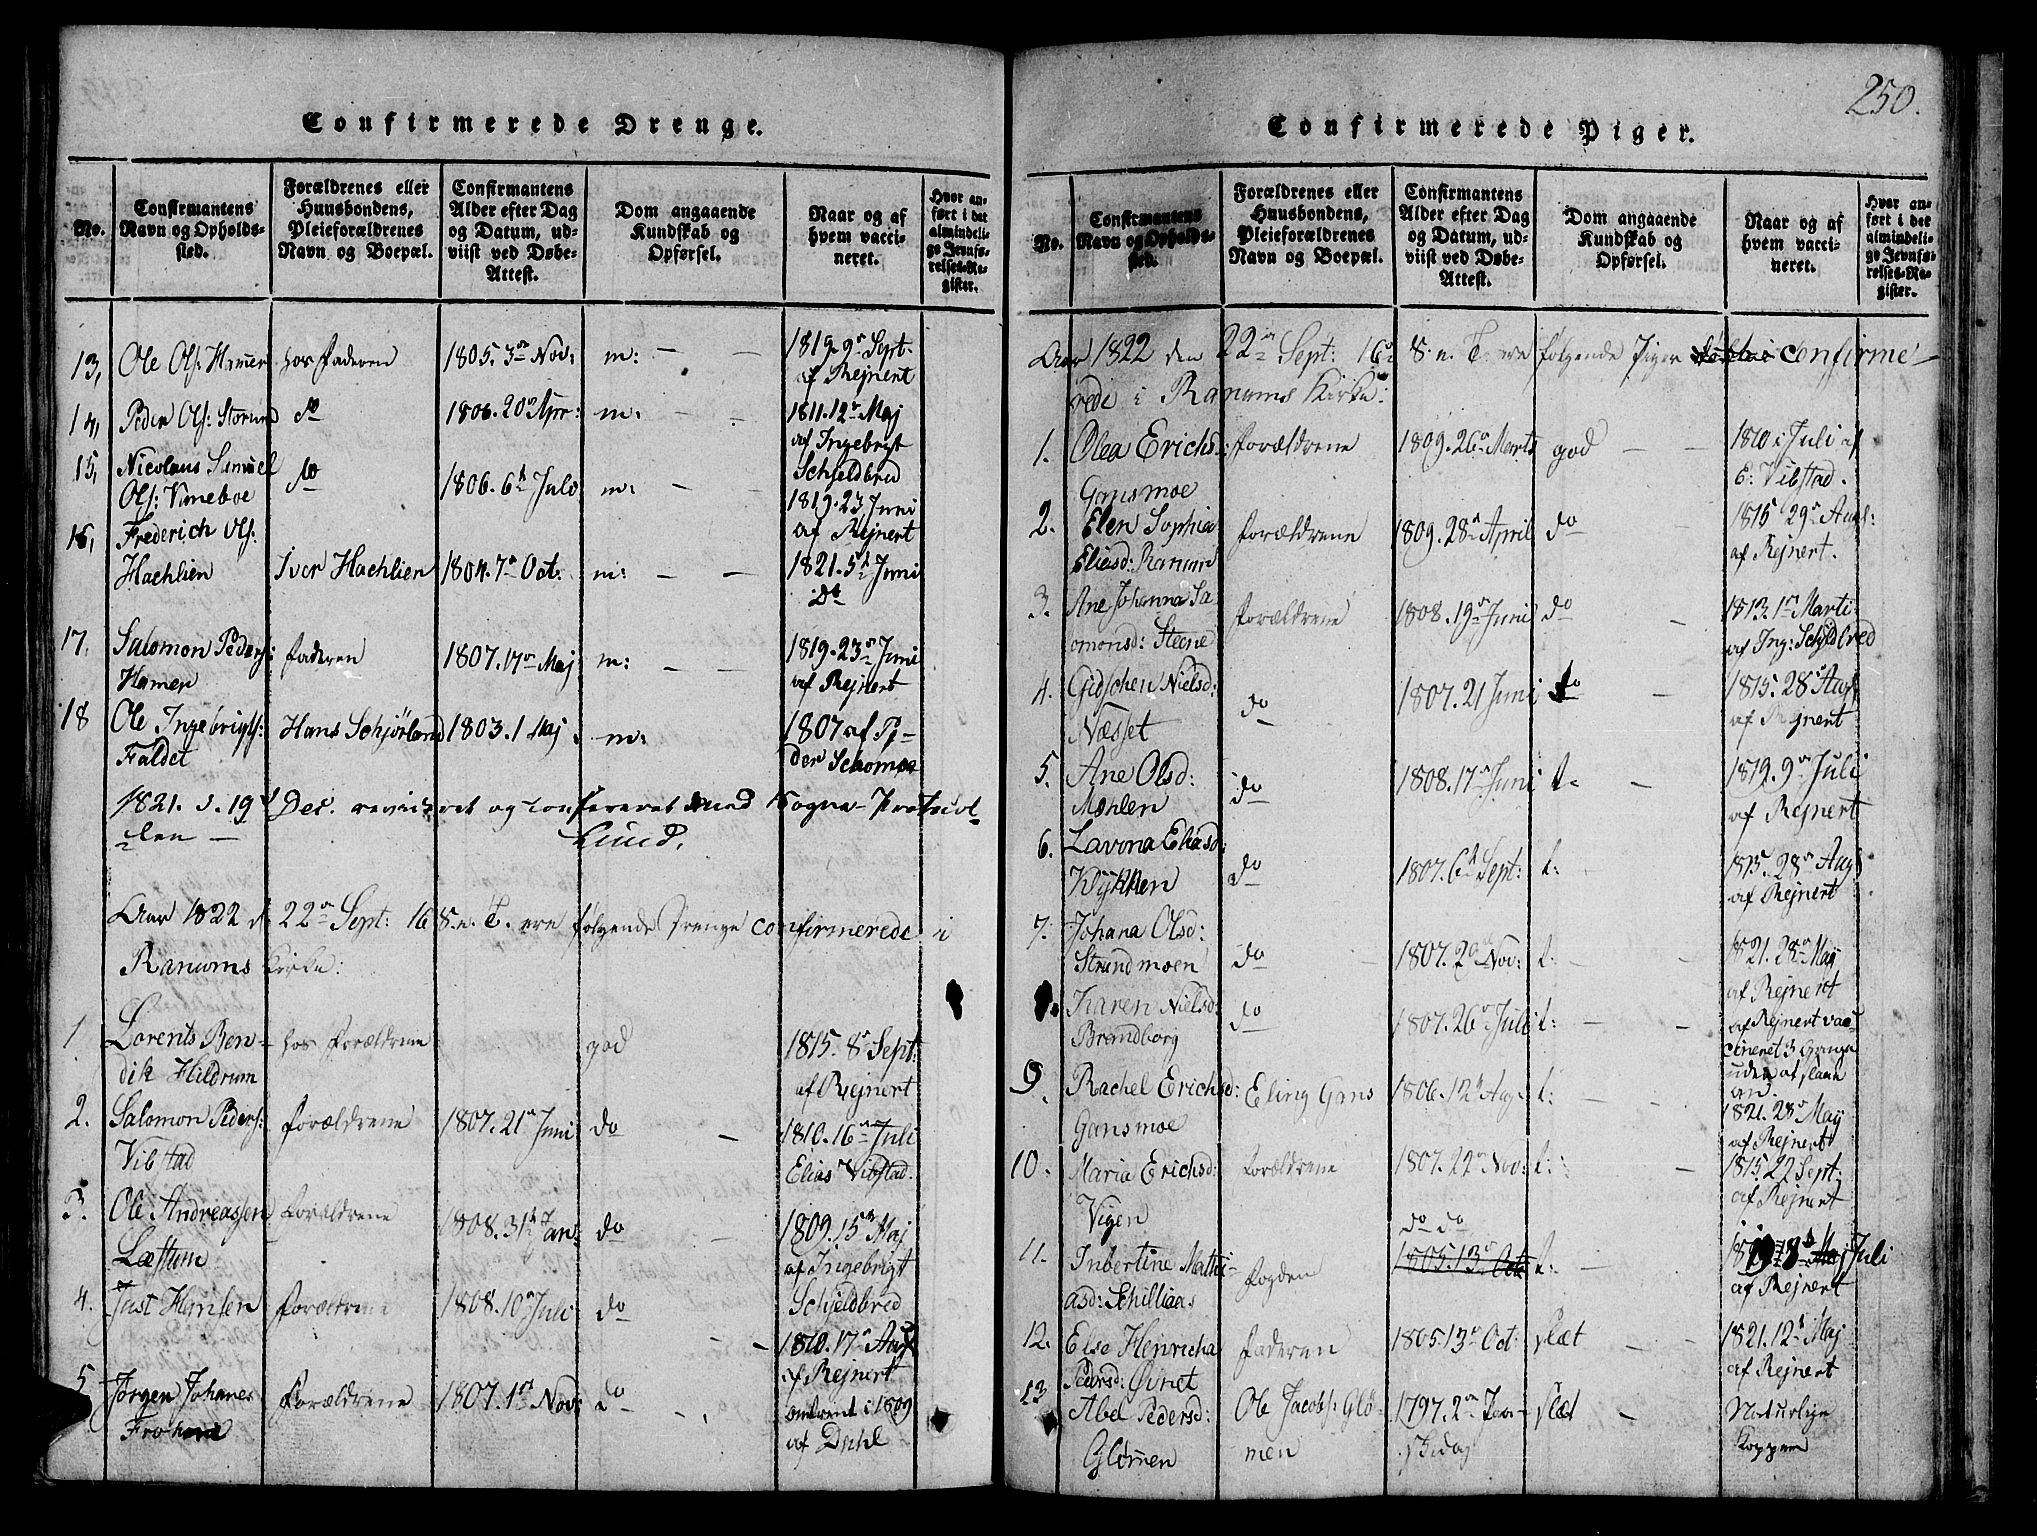 250.
Confirmerede Drenge.
No.
Confirmantens Navn og Opholds-sted.
Forældrenes eller Huusbondens, Pleieforældrenes Navn og Boepæl.
Confirmantens Alder efter Dag og Datum, ud-viist ved Døbe-Attest.
Dom angaaende Kundskab og Opførsel.
Naar og af hvem vacci-neret.
Hvor an-ført i det almindeli-ge Jevnfø-relses-Re-gister.
13, Ole Ols: Hamer hos Faderen 1805. 3die Nov: m: — — 1819. 9de Sept.
af Rejnert
14, Peder Ols: do 1806. 20de Apr: m: — — 1811. 12te Maj
af Ingebrigt
Schieldbred
15, Nicolaus Samuel
Ols: Vimeboe do 1806. 6te Juls m: — — 1819. 23 Juni
af Rejnert
16, Frederich Ols:
Haehlien Iver Haehlien 1804. 7de Oct: m: — — 1821. 5te Juni
Do
17, Salomon Peders:
Hamer Faderen 1807. 17de Maj m: — — 1819. 23de Juni
af Rejnert
18 Ole Ingebrigts:
Faldet Hans Schjørland 1803. 1 Maj m: 1807 af Pe-
der Schomoe
1821. d. 19d Dec. revideret og confereret med Sogne-Protocol-
len — Lund.
Aar 1822 d. 22de Sept: 16 S. e. T. ere følgende Drenge confirmerede i
Ranums Kirke:
1. Lorents Ben-
dik Hildrum hos Forældrene god 1815. 8de Sept:
af Rejnert
2. Salomon Peders:
Vibstad Forældrene 1807. 21de Juni do — 1810. 16de Juli
Elias Vibstad.
3. Ole Andreassen
Læssum Forældrene 1808. 31te Jan: do 1809. 15de Maj
af Ingebrigt
Schjeldbred
4. Just Hansen Forældrene 1808. 10de Juli do — 1810. 17de Aug
af Rejnert
5. Jørgen Johanes
Forældrene 1807. 1ste Nov: do — omtrent i 1809
af Dahl
Confirmerede Piger.
No.
Confirmantens Navn og Opholds-sted.
Forældrenes eller Huusbondens, Pleieforældrenes Navn og Boepæl.
Confirmantens Alder efter Dag og Datum, ud-viist ved Døbe-Attest.
Dom angaaende Kundskab og Opførsel.
Naar og af hvem vacci-neret.
Hvor an-ført i det almindeli-ge Jevnfø-relses-Re-gister.
Aar 1822 den 22de Sept: 16de S. e. T. ere følgende Piger confirme-
rede i Ranums Kirke:
1. Olea Erichs:
Gansmoe Forældrene 1809. 26de Marts god — — 1810 i Juli af
E: Vibstad.
2. Elen Sophia
Eliasd: Ranum Forældrene 1809. 28de April do — 1815 29de Aug:
af Rejnert.
3. Ane Johanna Sa-
omonsd: Steene Forældrene 1808. 19de Juni do — 1813. 1ste Marti
af Ing: Schjelbred
4. Gidschen Nielsd:
Næsset do 1807. 21 Juni do — 1815. 28de Aug
af Rejnert
5. Ane Olsd:
Monlen do 1808. 17de Juni t- — 1819. 9de Juli
af Rejnert
6. Lavina Eliasd:
Klykken do 1807. 6te Sept: t: — 1815. 28de Aug
af Rejnert
7. Johana Olsd:
Strandmoen do — 1807. 2de Nov: t: — — 1821. 28de Maij
af Rejnert
Karen Nielsd:
Brandborg do 1807. 26de Juli t: — — af Rejnert vac-
cineret 3 Gange
uden at slaae
an.
9. Rachel Erichsd:
Gansmoe Eling Gans 1806. 12te Aug. t: — 1821. 28de Maij
af Rejnert
10. Maria Erichsd:
Vigen Forældrene 1807. 22de Nov: t: — 1815. 22 Sept:
af Rejnert
11. Inbertine Mathi-
asd: Schilliaas Fogden do do
1805. 13de Oct t: — Juli
af Rejnert
12. Else Henricha
Pedersd: Øvnet Faderen 1805 13de Oct: slæt — — 1821. 12te Maj
af Rejnert
13 Abel Pedersd:
Glømen Ole Jacobs: Glø-
men 1797. 2den
slæt — Naturlige
Kopper